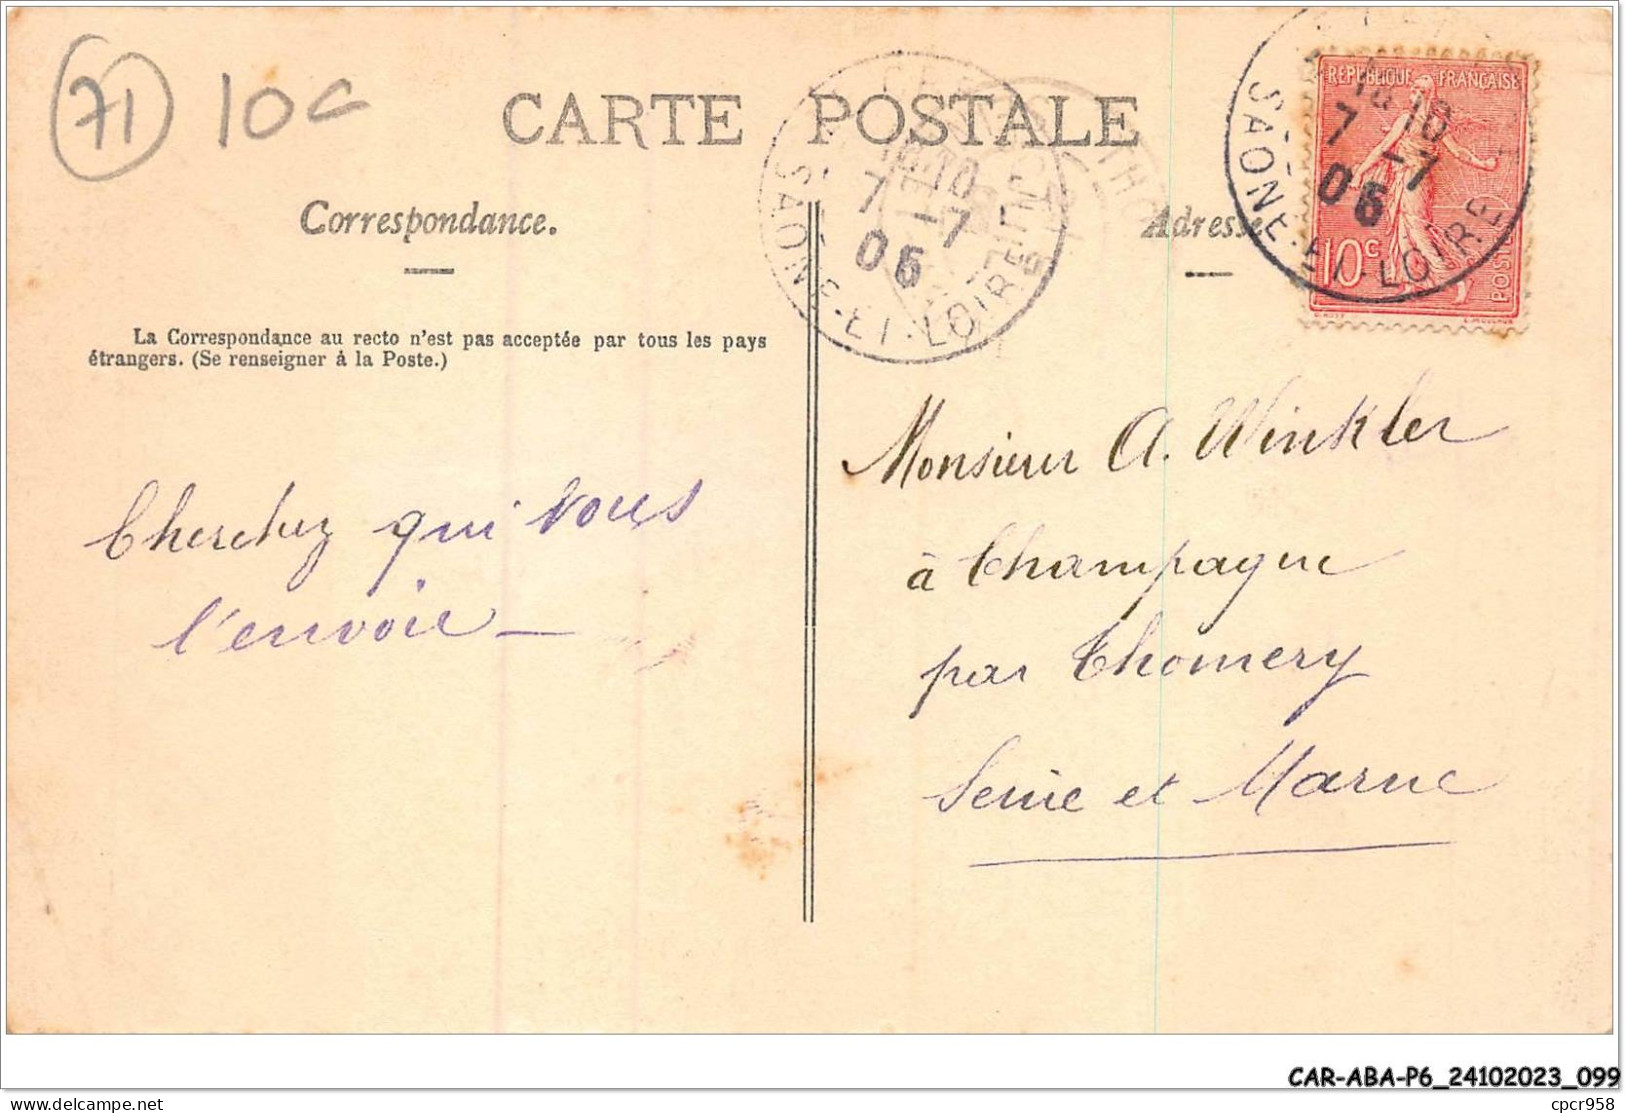 71 10c
CARTE POSTALE
RÉPUBLIQUE FRANÇAISE
10c
POSTES
7 -7
05
SAONE-ET-LOIRE
7 -7
05
SAONE-ET-LOIRE
Correspondance.
Adresse.
La Correspondance au recto n'est pas acceptée par tous les pays
étrangers. (Se renseigner à la Poste.)
Cherchez qui vous
l'envoie_
Monsieur A. Winkler
à Champagne
par Thomery
Seine et Marne
CAR-ABA-P6_24102023_099
delcampe.net
cpcr958